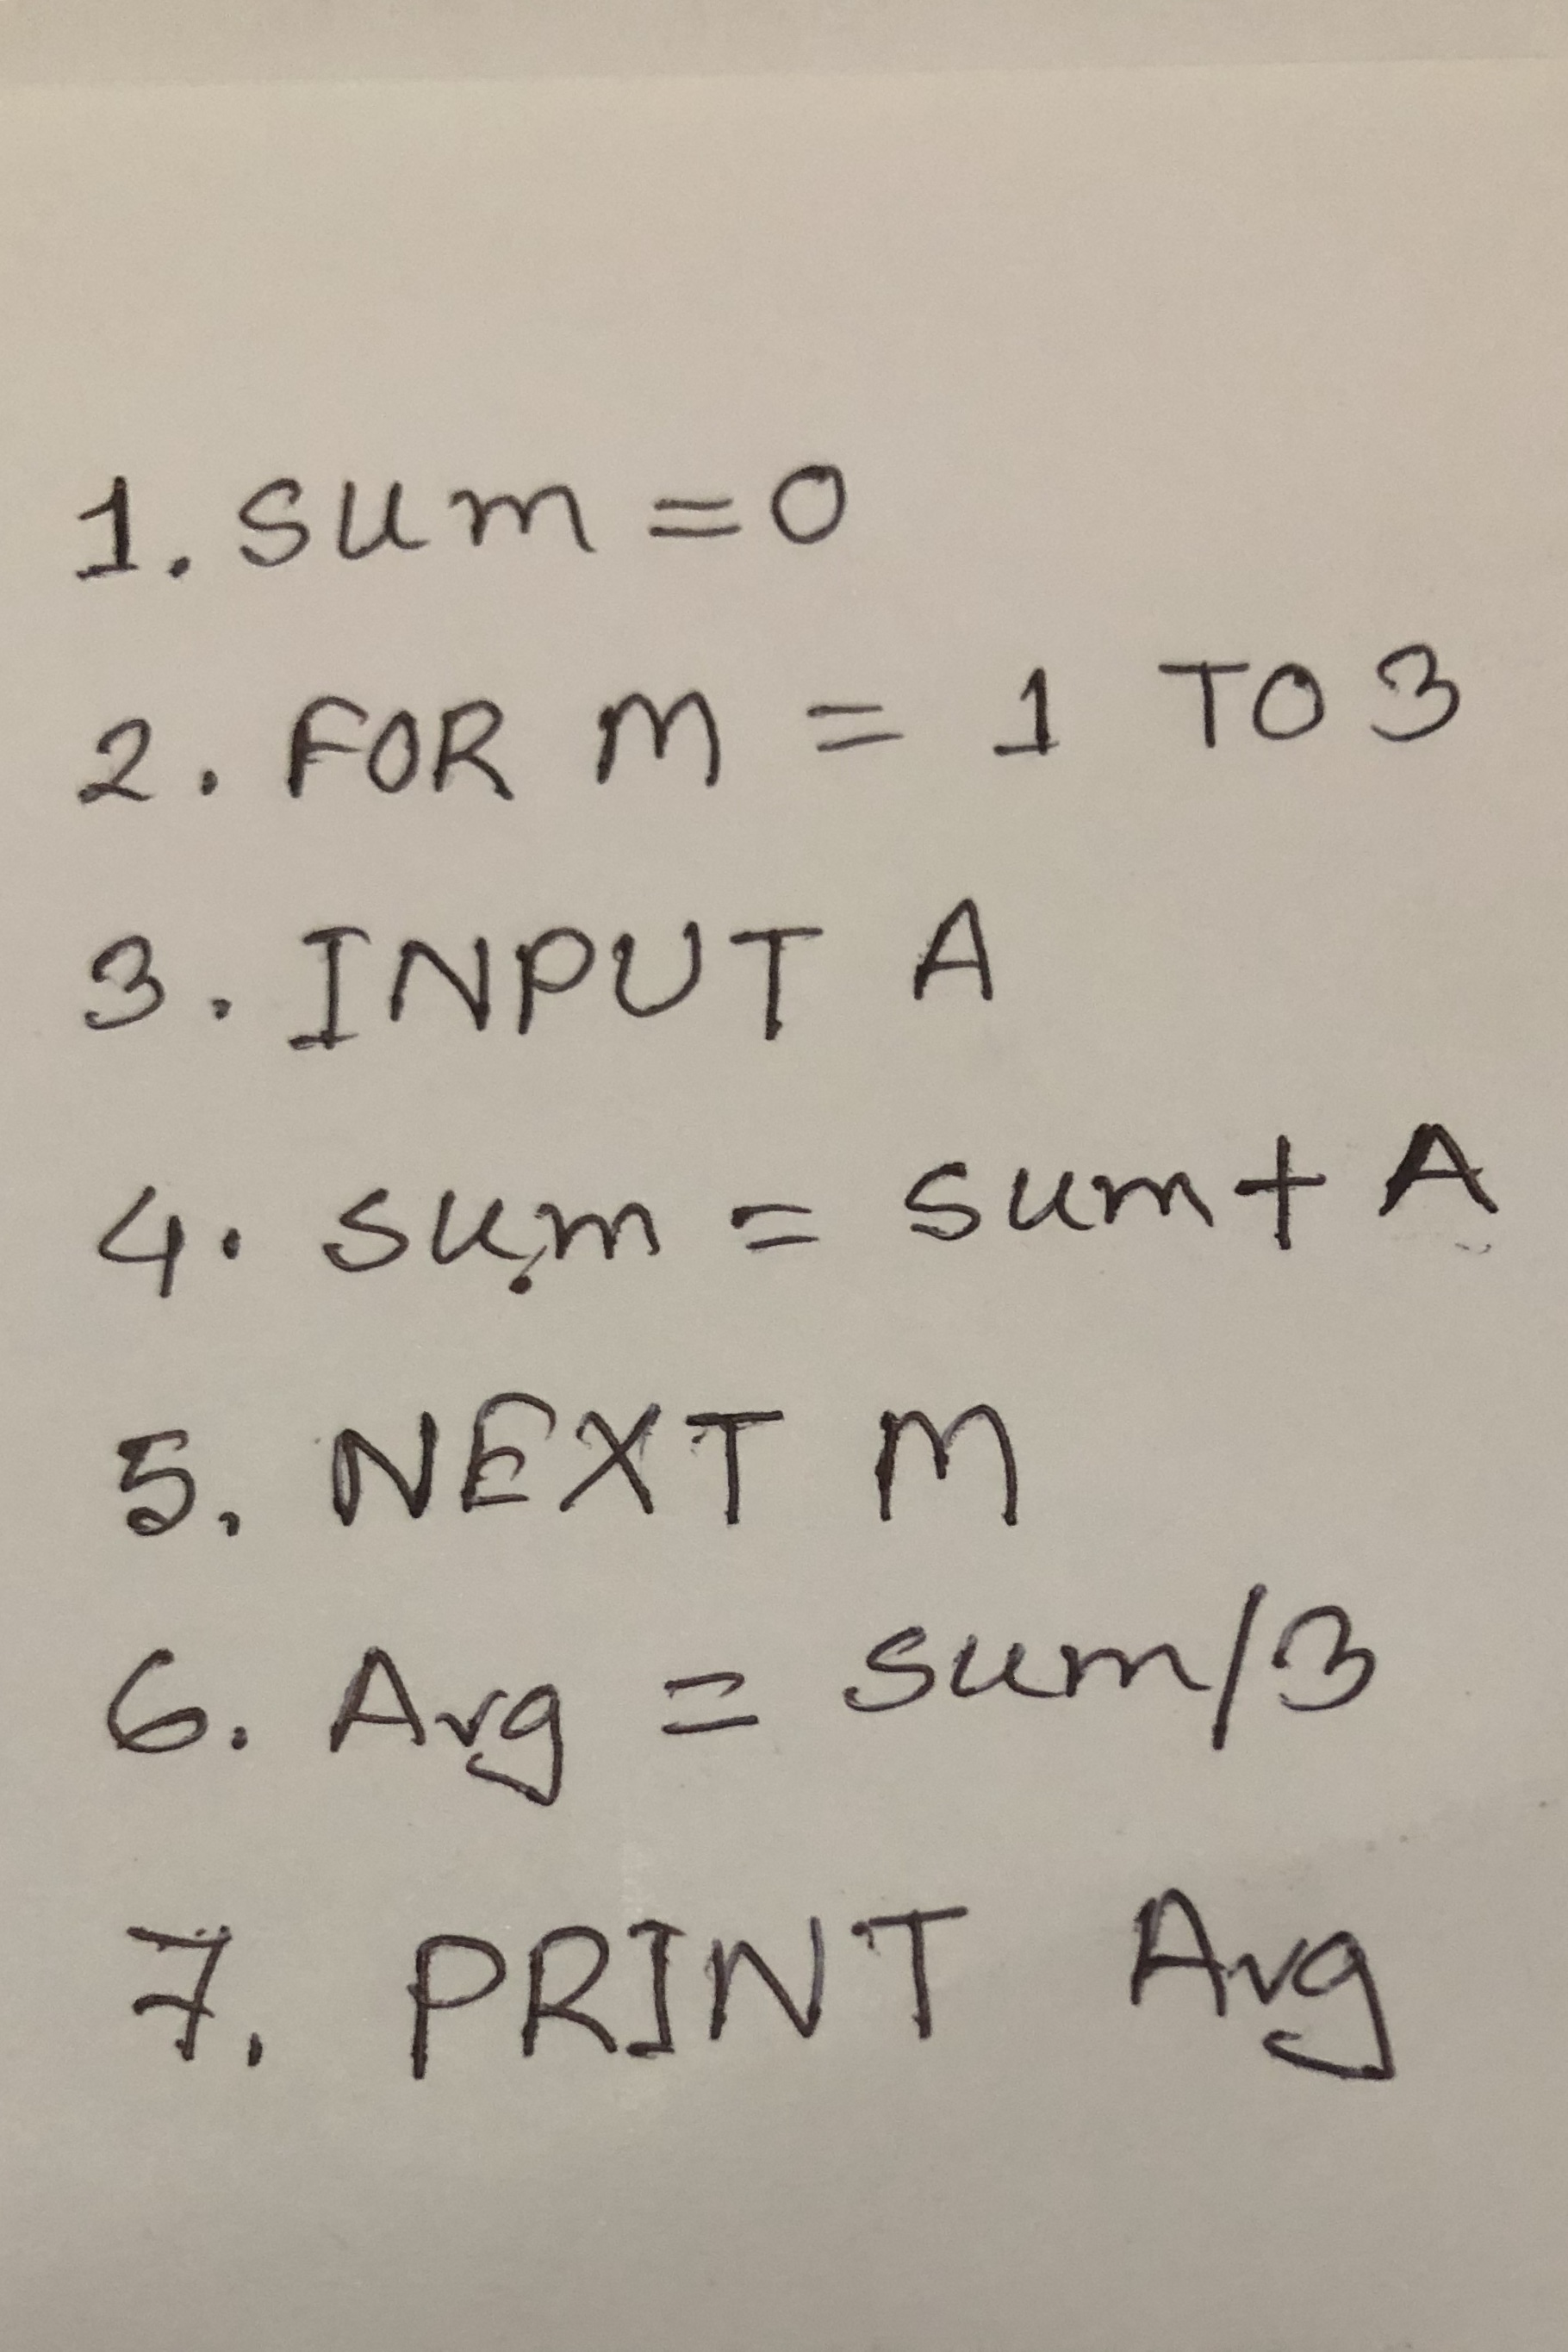 1. sum = 0
2. FOR M = 1 TO 3
3. INPUT A
4. sum = sum + A
5. NEXT M
6. Avg = sum/3
7. PRINT Avg